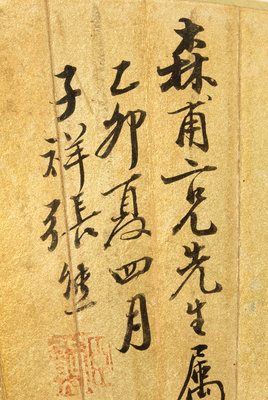 森甫六兄先生属
乙卯夏四月
子祥張熊